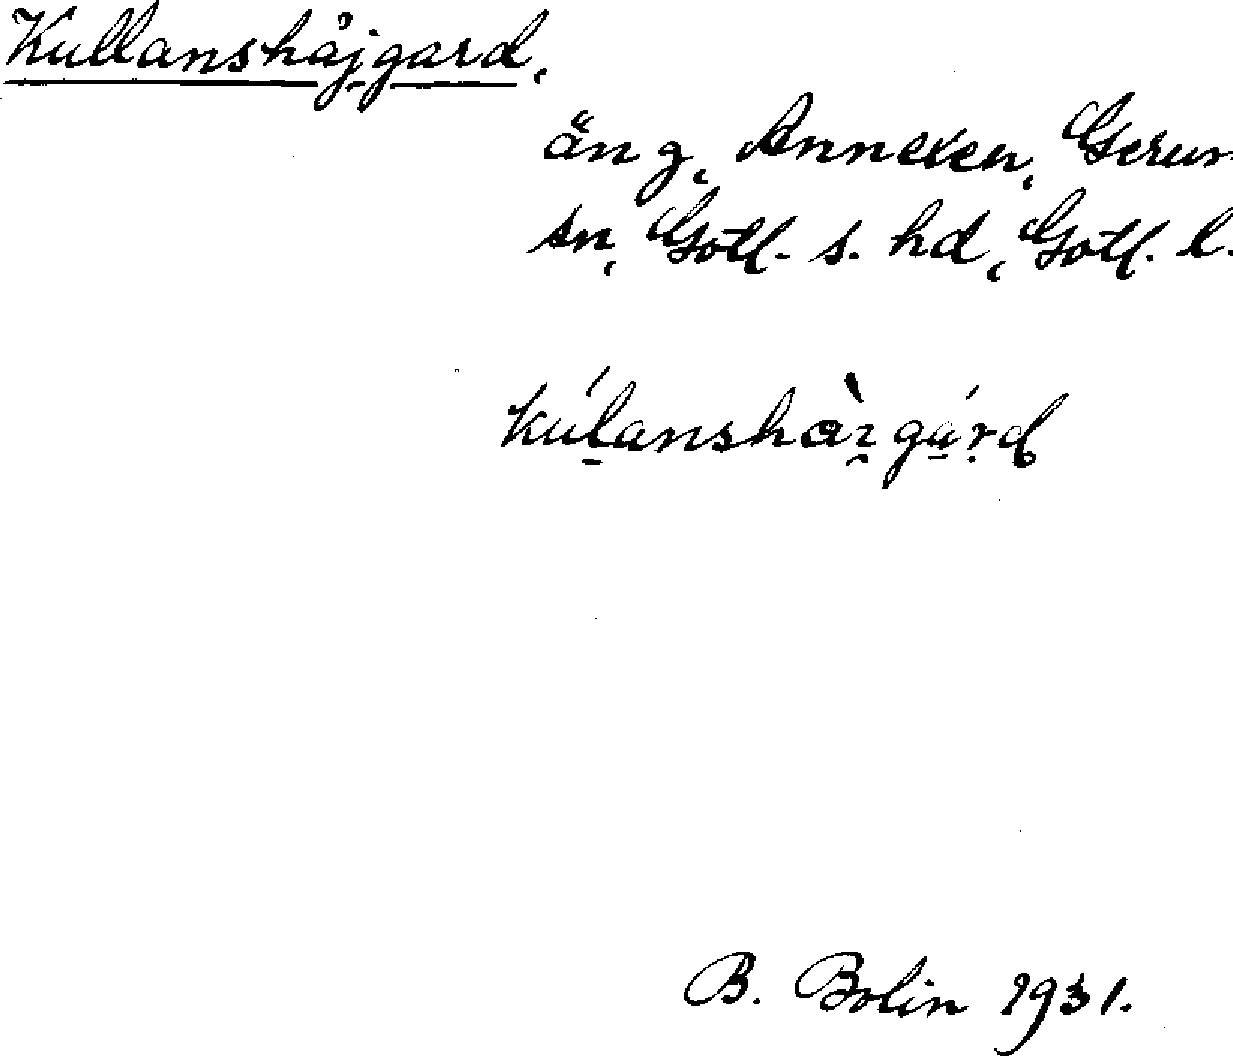 Kullanshåjgard,
äng, Annexen, Gerum
sn, Gotl. s. hd, Gotl. l.
kúlanshàrgárd
B. Bolin 1931.